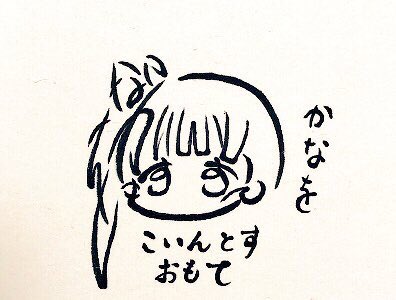 かなを
こいんとす
おもて